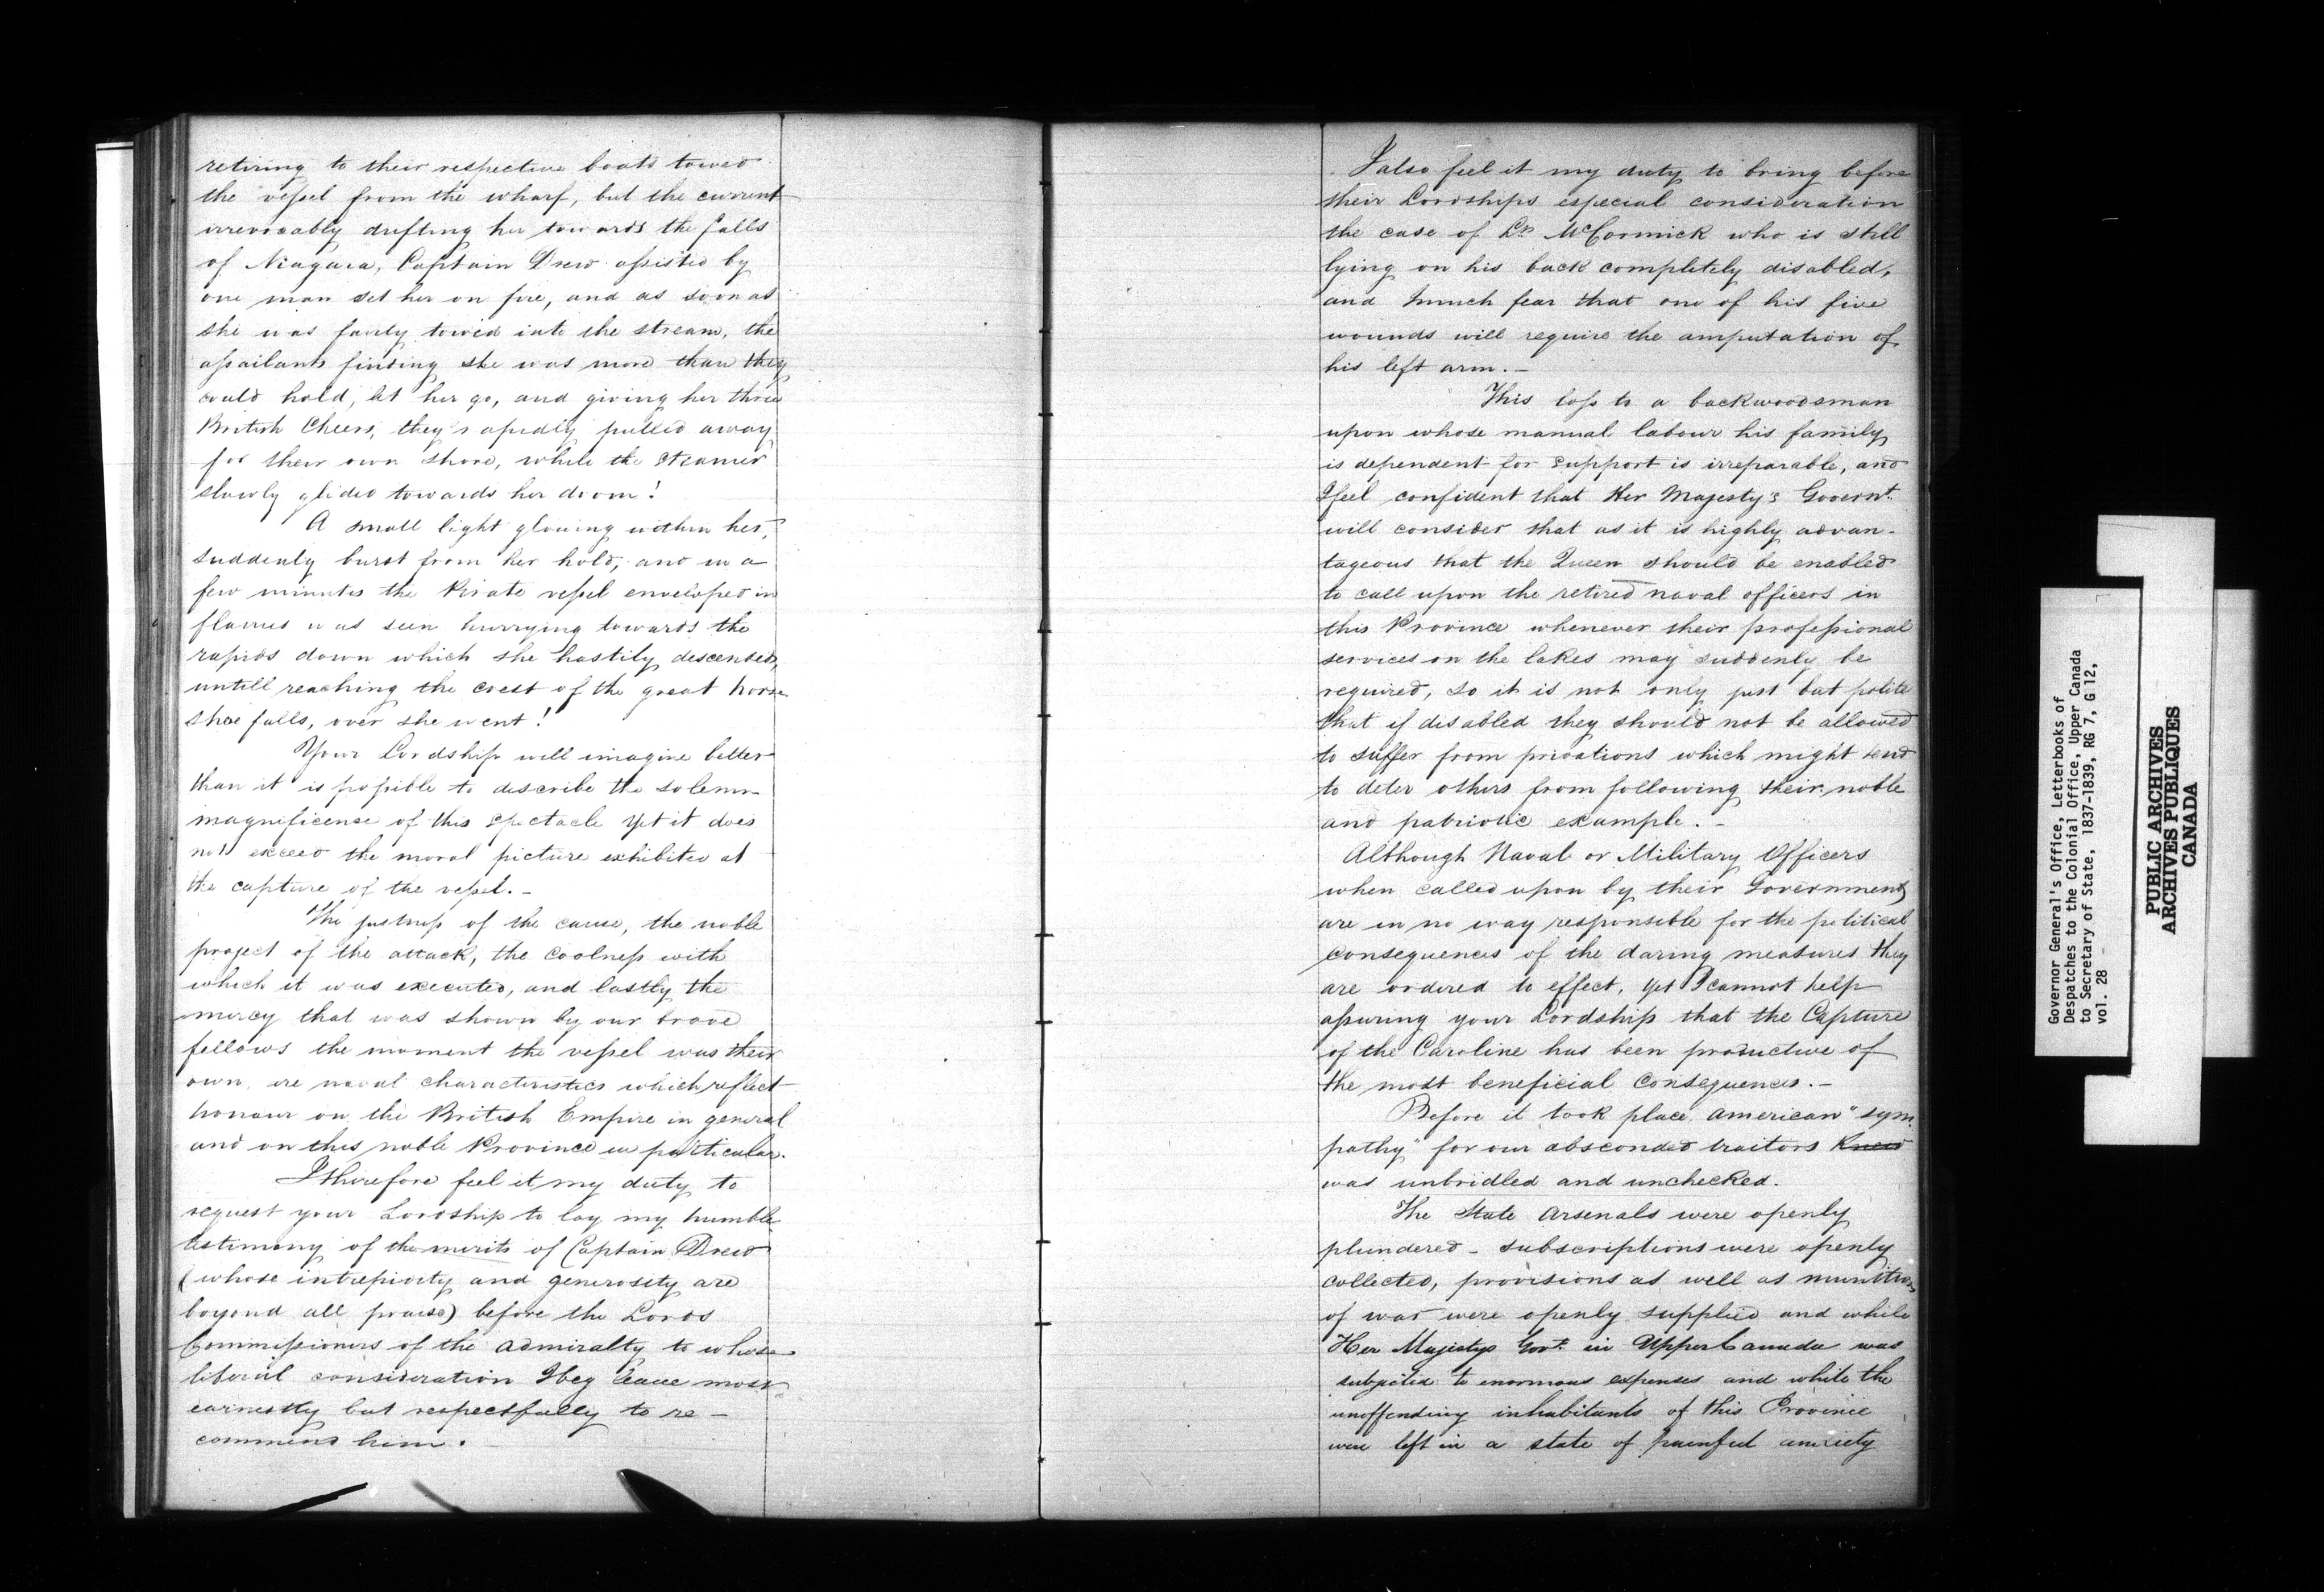 retiring to their respective boats towed
the vessel from the wharf, but the current
irrevocably drifting her towards the falls
of Niagara, Captain Drew assisted by
one man set her on fire, and as soon as
she was fairly towed into the stream, the
assailants finding she was more than they
could hold, let her go, and giving her three
British Cheers, they rapidly pulled away
for their own shore, while the Steamer
slowly glided towards her doom!
A small light glowing within her,
suddenly burst from her hold, and in a
few minutes the Pirate vessel enveloped in
flames was seen hurrying towards the
rapids down which she hastily descended,
untill reaching the crest of the great horse
shoe falls, over she went!
Your Lordship will imagine better
than it is possible to describe the solemn
magnificense of this spectacle yet it does
not exceed the moral picture exhibited at
the capture of the vessel.-
The justness of the cause, the noble
project of the attack, the coolness with
which it was executed, and lastly the
mercy that was shown by our brave
fellows the moment the vessel was their
own, are naval characteristics which reflect
honour on the British Empire in general
and on this noble Province in particular.
I thirefore feel it my duty to
request your Lordship to lay my humble
testimony of the merits of Captain Drew
(whose intrepidity and generosity are
beyond all praise) before the Lords
Commissioners of the Admiralty to whose
liberal consideration I beg leave most
earnestly but respectfully to re-
commend him.
I also feel it my duty to bring before
their Lordships especial consideration
the case of Lt. McCormick who is still
lying on his back completely disabled,
and I much fear that one of his five
wounds will require the amputation of
his left arm.-
This loss to a backwoodsman
upon whose manual labour his family
is dependent for support is irreparable, and
I feel confident that Her Majesty's Governt.
will consider that as it is highly advan-
tageous that the Queen should be enabled
to call upon the retired naval officers in
this Province whenever their professional
services on the lakes may suddenly be
required, so it is not only just but polite
that if disabled they should not be allowed
to suffer from privations which might tend
to deter others from following their noble
and patriotic example.-
Although Naval or Military Officers
when called upon by their Government
are in no way responsible for the political
consequences of the daring measures they
are ordered to effect, yet I cannot help
assuring your Lordship that the Capture
of the Caroline has been productive of
the most beneficial consequences.-
Before it took place American "sym-
pathy" for our absconded traitors knew
was unbridled and unchecked.
The State Arsenals were openly
plundered - subscriptions were openly
collected, provisions as well as munitions
of war were openly supplied and while
Her Majestys Govt. in Upper Canada was
subjected to enormous expenses and while the
unoffending inhabitants of this Province
were left in a state of painful anxiety
Governor General's Office, Letterbooks of
Despatches to the Colonial Office, Upper Canada
to Secretary of State, 1837-1839, RG 7, G 12,
vol. 28
PUBLIC ARCHIVES
ARCHIVES PUBLIQUES
CANADA